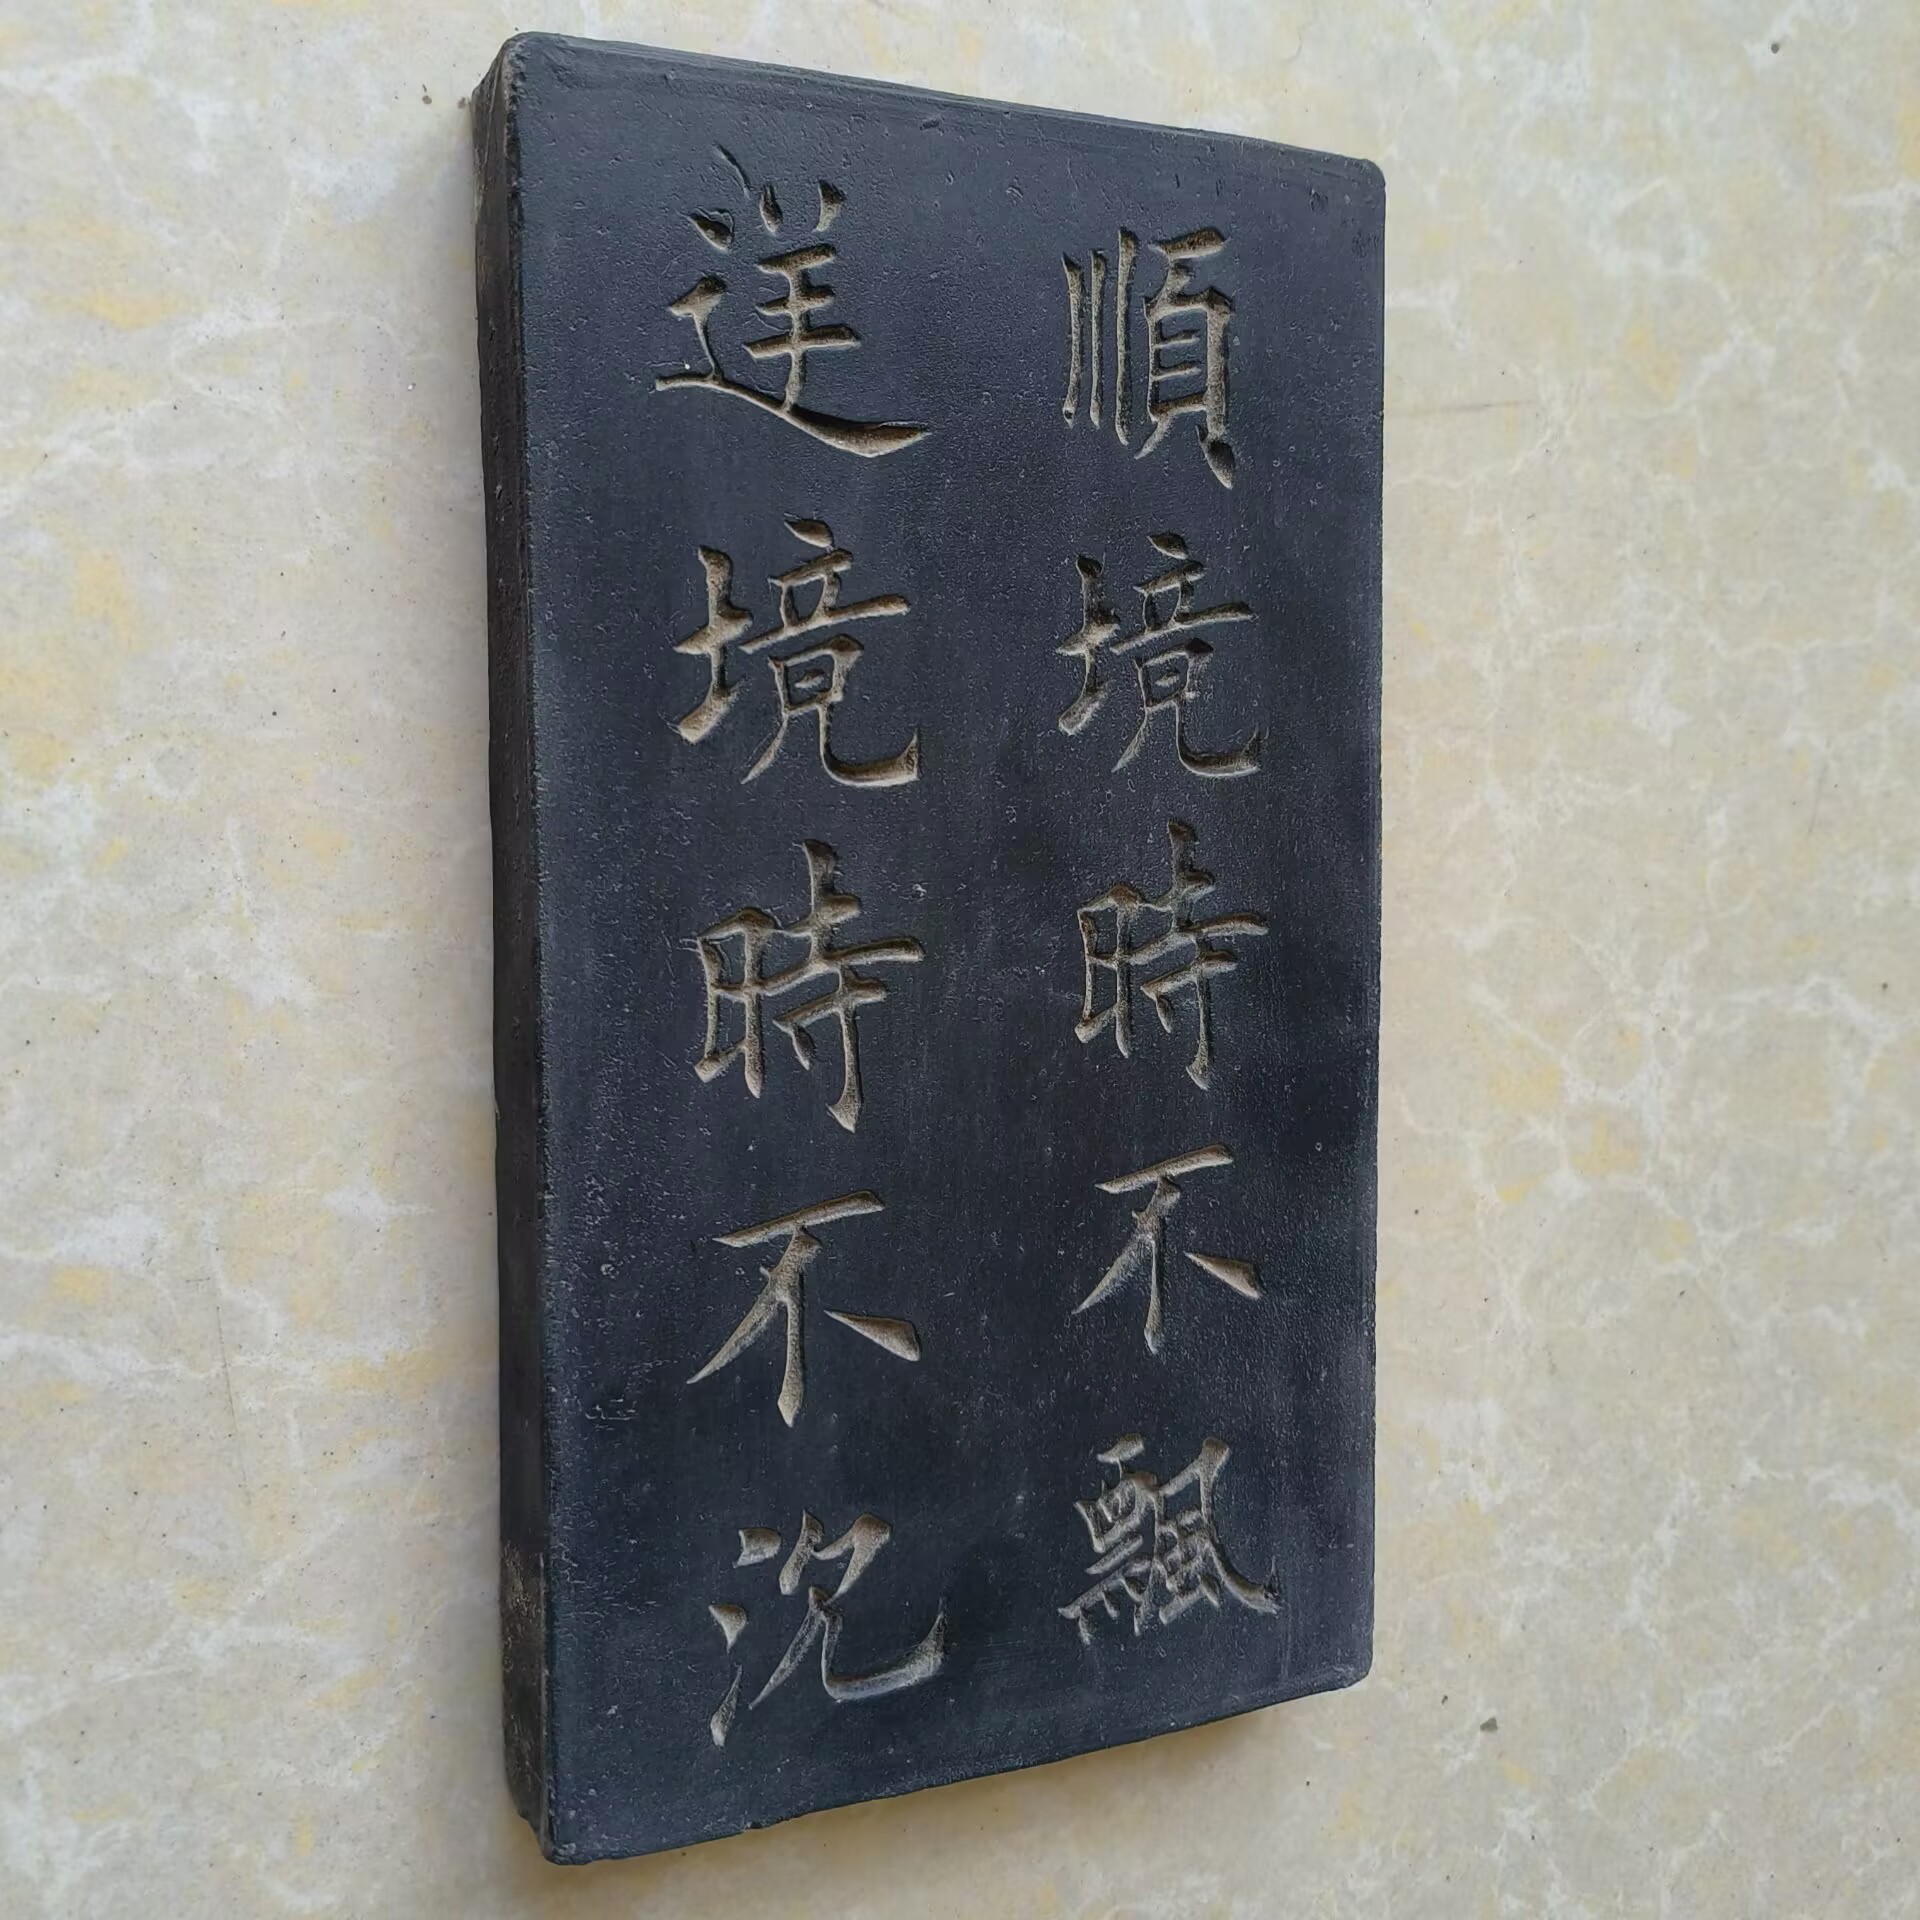 順境時不飄
逆境時不沉